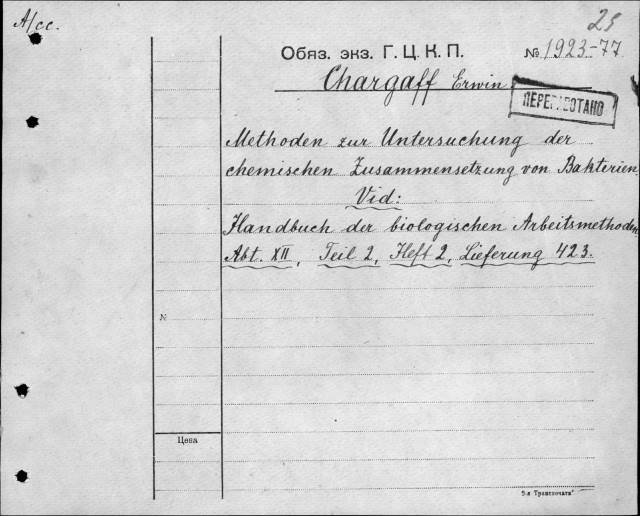 А/сс.
25
Обяз. экз. Г. Ц. К. П.
№ 1923-77
Chargaff Erwin.
ПЕРЕРАБОТАНО
Methoden zur Untersuchung der
chemischen Zusammensetzung von Bakterien.
Vid:
Handbuch der biologischen Arbeitsmethoden
Abt. XII, Teil 2, Heft 2, Lieferung 423.
N
Цена